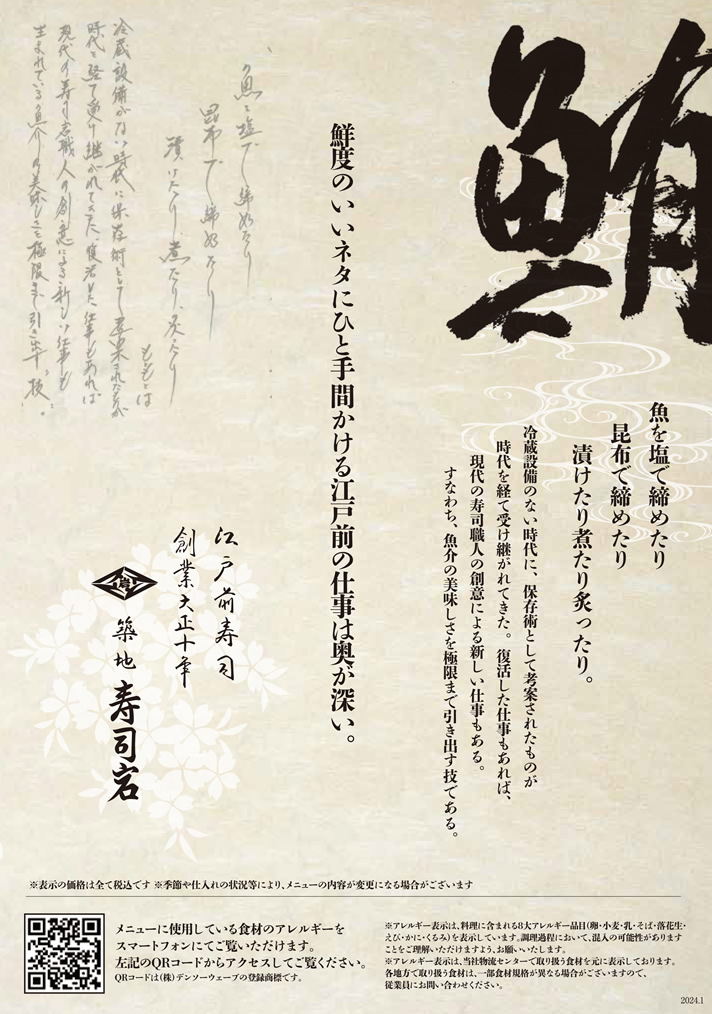 鮪
魚を塩で締めたり
昆布で締めたり
漬けたり煮たり炙ったり。
冷蔵設備のない時代に、保存術として考案されたものが
時代を経て受け継がれてきた。復活した仕事もあれば、
現代の寿司職人の創意による新しい仕事もある。
すなわち、魚介の美味しさを極限まで引き出す技である。
鮮度のいいネタにひと手間かける江戸前の仕事は奥が深い。
魚を塩で締めたり
昆布で締めたり
漬けたり、煮たり、炙ったり
もともとは
冷蔵設備がない時代に保存術として考案されたものが
時代を経て受け継がれてきた。復活した仕事もあれば
現代の寿司職人の創意による新しい仕事も
生まれている。魚介の美味しさを極限まで引き出す"技"。
江戸前寿司
創業大正十年
築地
寿司岩
※表示の価格は全て税込です ※季節や仕入れの状況等により、メニューの内容が変更になる場合がございます
メニューに使用している食材のアレルギーを
スマートフォンにてご覧いただけます。
左記のQRコードからアクセスしてご覧ください。
QRコードは(株)デンソーウェーブの登録商標です。
※アレルギー表示は、料理に含まれる8大アレルギー品目(卵・小麦・乳・そば・落花生・
えび・かに・くるみ)を表示しています。調理過程において、混入の可能性があります
ことをご理解いただけますよう、お願いいたします。
※アレルギー表示は、当社物流センターで取り扱う食材を元に表示しております。
各地方で取り扱う食材は、一部食材規格が異なる場合がございますので、
従業員にお問い合わせください。
2024.1